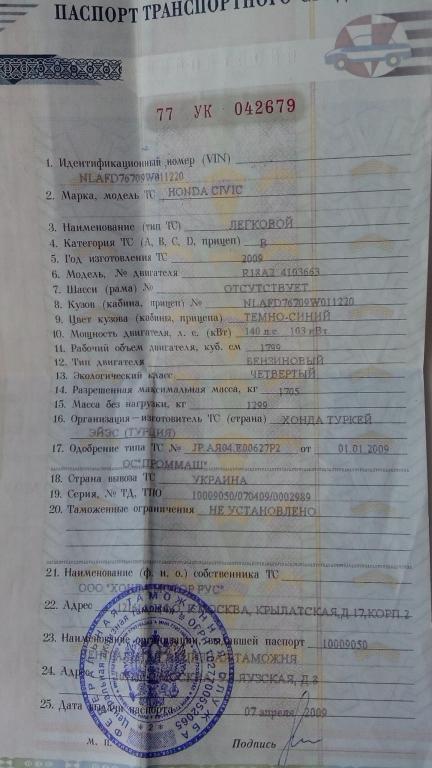 ПАСПОРТ ТРАНСПОРТНОГО
77 УК 042679
1. Идентификационный номер (VIN)
NLAFD76709W011220
2. Марка, модель ТС HONDA CIVIC
3. Наименование (тип ТС) ЛЕГКОВОЙ
4. Категория ТС (A, B, C, D, прицеп) B
5. Год изготовления ТС 2009
6. Модель, № двигателя R18A2 4103663
7. Шасси (рама) № ОТСУТСТВУЕТ
8. Кузов (кабина, прицеп) № NLAFD76709W011220
9. Цвет кузова (кабины, прицепа) ТЕМНО-СИНИЙ
10. Мощность двигателя, л. с. (кВт) 140 л.с. 103 кВт
11. Рабочий объем двигателя, куб. см 1799
12. Тип двигателя БЕНЗИНОВЫЙ
13. Экологический класс ЧЕТВЕРТЫЙ
14. Разрешенная максимальная масса, кг 1705
15. Масса без нагрузки, кг 1299
16. Организация—изготовитель ТС (страна) ХОНДА ТУРКЕЙ
ЭЙЭС (ТУРЦИЯ)
17. Одобрение типа ТС № JP.АЯ04.Е00627Р2 от 01.01.2009
ОС"ПРОММАШ"
18. Страна вывоза ТС УКРАИНА
19. Серия, № ТД, ТПО 10009050/070409/0002989
20. Таможенные ограничения НЕ УСТАНОВЛЕНО
21. Наименование (ф. и. о.) собственника ТС
ООО "ХОНДА МОТОР РУС"
22. Адрес МОСКВА, КРЫЛАТСКАЯ,Д.17,КОРП.2
23. Наименование организации, выдавшей паспорт 10009050
ТАМОЖНЯ
24. Адрес ЯУЗСКАЯ, Д.8
25. Дата выдачи паспорта 07 апреля 2009
М. п. Подпись